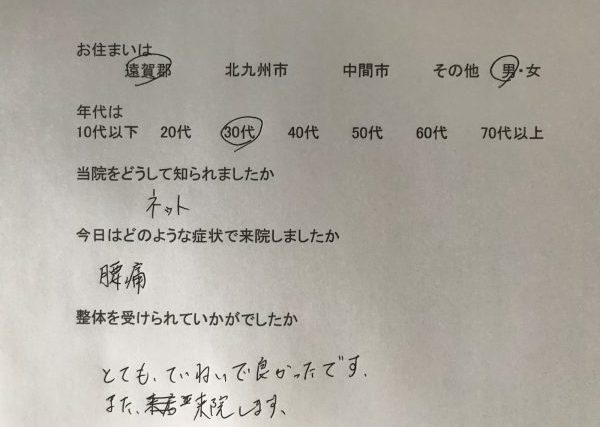 お住まいは
遠賀郡 北九州市 中間市 その他 男・女
年代は
10代以下 20代 30代 40代 50代 60代 70代以上
当院をどうして知られましたか
ネット
今日はどのような症状で来院しましたか
腰痛
整体を受けられていかがでしたか
とても、ていねいで良かったです。
また、来院します、